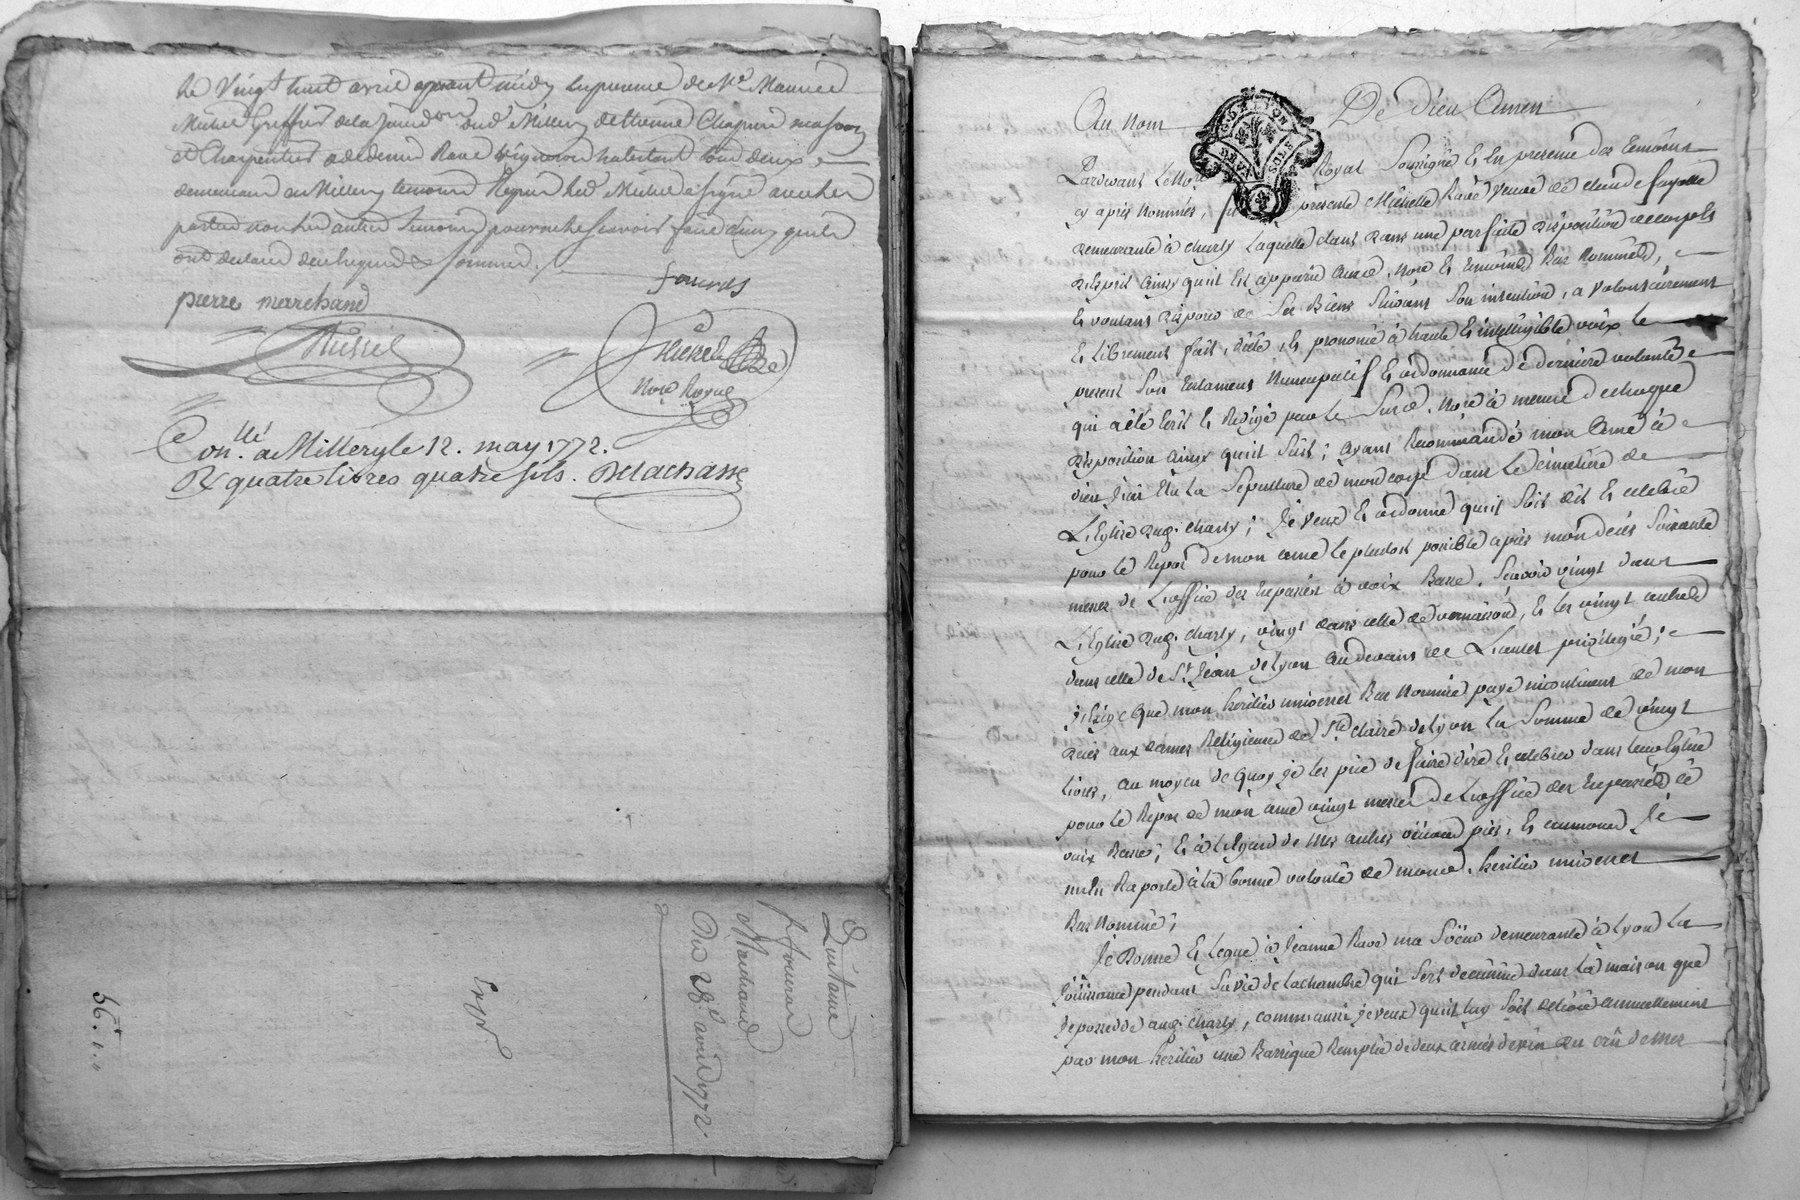 le Vingt huit avril apres midy en presence de Me Maurice
Michel Greffier de la Jurid.on dud. Millery de Etienne Chapuis masson
et Charpentier & de denis Rave Vigneron habitant tous deux
demeurant au Millery temoins Requis led. Michel a signé avec led.
non led. autre temoin pour ne le scavoir faire ainsy quils
ont declaré de ce Requis & sommés.
pierre marchand
Michel
Michel
Nore Royal
Con.llé a Millery le 12. may 1772.
R quatre livres quatre sols. Delachasse
Quittance
Marchand
Du 28e. avril 1772.
Exp.
Au Nom De Dieu Amen
G. DE LION
DEUX SOLS
Pardevant le Nore Royal Soussigné Et En presence des temoins
cy après Nommés, présente Michelle Rave veuve de claude fayolle
demeurante à charly Laquelle etant dans une parfaite disposition de corps &
d'Esprit ainsy qu'il Est apparu aud. Nore Et temoins Bas Nommés,
Et voulant disposer de Ses Biens Suivant Son intention, a volontairement
Et librement fait, dicté, Et prononcé à haute Et intelligible voix le
present Son testament Nuncupatif Et ordonnance de derniere volonté
qui a été Ecrit Et Redigé par le Susd. Nore à mesure de chaque
disposition ainsy qu'il Suit; ayant Recommandé mon Ame à
dieu J'ai Elu la Sepulture de mon corps dans le cimetière de
L'Eglise dud. charly; Je veux Et ordonne qu'il Soit dit Et celebré
pour le Repos de mon ame le plutost possible après mon decès Soixante
messes de L'office des trepassés à voix Basse, Scavoir vingt dans
L'Eglise dud. charly, vingt dans celle de vernaison, Et les vingt autres
dans celle de St. Jean de Lyon au devant de L'autel privilegié;
J'Exige que mon heritier universel Bas Nommé paye incontinent de mon
decès aux dames Religieuses de Ste. claire de Lyon la Somme de vingt
livres, au moyen de quoy Je les prie de faire dire Et celebrer dans leur Eglise
pour le Repos de mon ame vingt messes de L'office des trepassés à
voix Basse; Et à L'Egard de Mes autres œuvres pies, Et aumones, Je
m'En Raporte à la bonne volonté de mond. heritier universel
Bas Nommé;
Je Donne Et Legue à Jeanne Rave ma Sœur demeurante à Lyon la
Jouissance pendant Sa vie de la chambre qui Sert de cuisine dans la maison que
Je possedde aud. charly, comm'aussi Je veux qu'il luy Soit delivré annuellement
par mon heritier une Barrique Remplie de deux asnées de vin du crû de mes